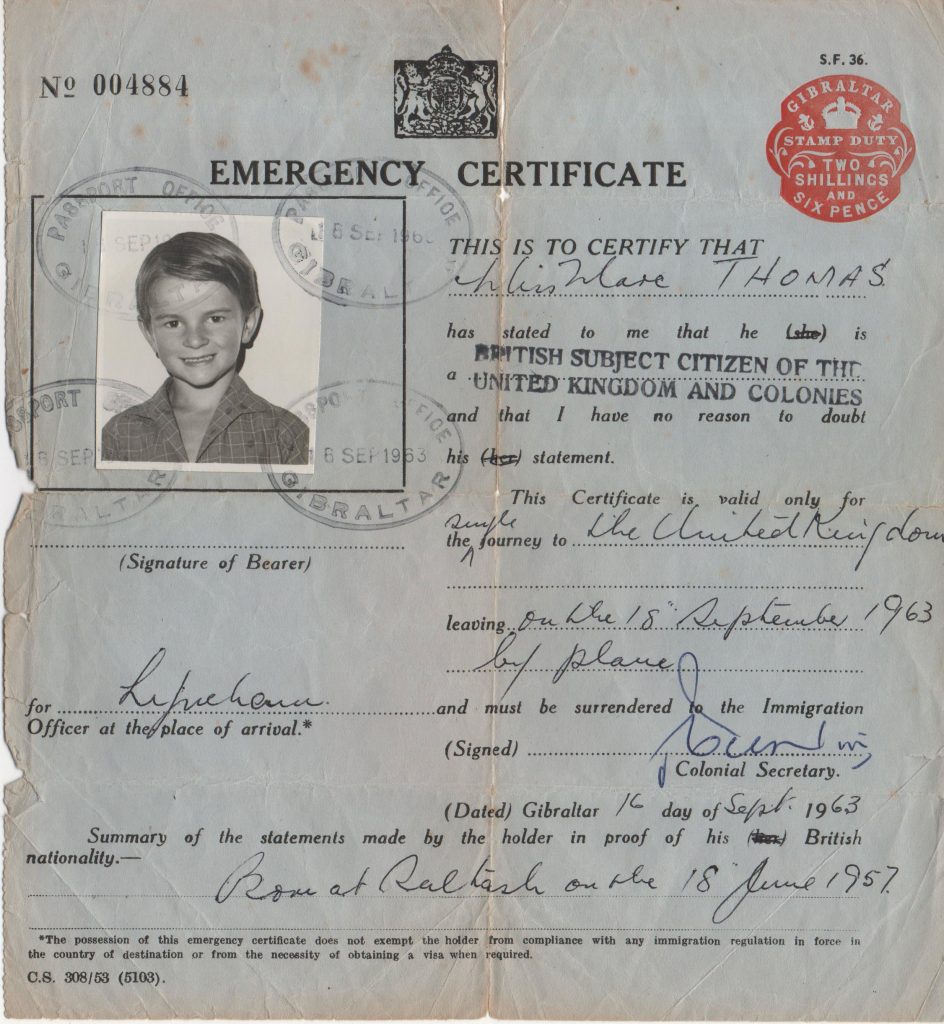 S.F. 36.
Nº 004884
GIBRALTAR
STAMP DUTY
TWO
SHILLINGS
AND
SIX PENCE
EMERGENCY CERTIFICATE
PASSPORT OFFICE
SEP 196
GIBRALTAR
PASSPORT OFFICE
18 SEP 1963
GIBRALTAR
THIS IS TO CERTIFY THAT
THOMAS
has stated to me that he (she) is
BRITISH SUBJECT CITIZEN OF THE
a UNITED KINGDOM AND COLONIES
and that I have no reason to doubt
his (her) statement.
PASSPORT OFFICE
SEP
GIBRALTAR
PASSPORT OFFICE
18 SEP 1963
GIBRALTAR
This Certificate is valid only for
single
the journey to the United Kingdom
(Signature of Bearer)
leaving on the 18" September 1963
by plane
for and must be surrendered to the Immigration
Officer at the place of arrival.*
(Signed)
Colonial Secretary.
(Dated) Gibraltar 16 day of Sept. 1963
Summary of the statements made by the holder in proof of his (her) British
nationality.—
Born at Saltash on the 18" June 1957.
*The possession of this emergency certificate does not exempt the holder from compliance with any immigration regulation in force in
the country of destination or from the necessity of obtaining a visa when required.
C.S. 308/53 (5103).